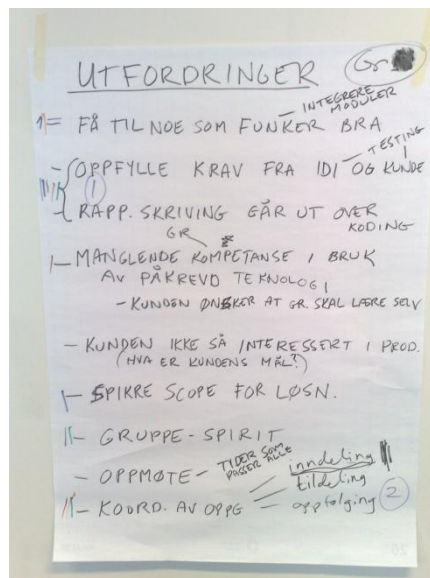 UTFORDRINGER Gr
1 = FÅ TIL NOE SOM FUNKER BRA — INTEGRERE MODULER
- OPPFYLLE KRAV FRA IDI OG KUNDE — TESTING
1
- RAPP. SKRIVING GÅR UT OVER
KODING
GR
- MANGLENDE KOMPETANSE I BRUK
AV PÅKREVD TEKNOLOGI
- KUNDEN ØNSKER AT GR. SKAL LÆRE SELV
- KUNDEN IKKE SÅ INTERESSERT I PROD.
(HVA ER KUNDENS MÅL?)
- SPIKRE SCOPE FOR LØSN.
- GRUPPE-SPIRIT
- OPPMØTE - TIDER SOM PASSER ALLE
- KOORD. AV OPPG = inndeling
tildeling
oppfølging 2